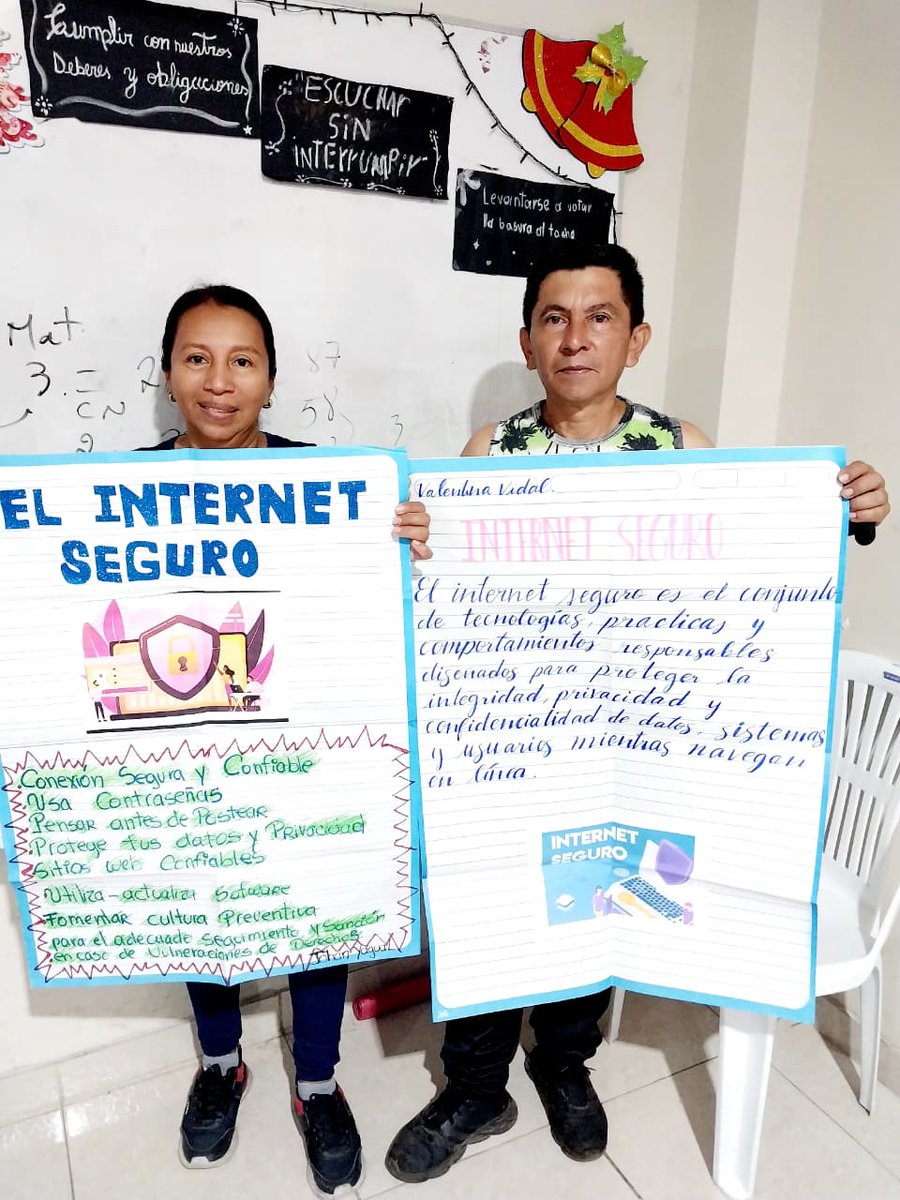 Cumplir con nuestros
Deberes y obligaciones
"ESCUCHAR
SIN
INTERRUMPIR
Levantarse a votar
la basura al tacho
Mat
3. =
2
87
CN
58
2
3
EL INTERNET
SEGURO
Conexión Segura y Confiable
Usa Contraseñas
Pensar antes de Postear
Protege tus datos y Privacidad
Sitios web Confiables
Utiliza-actualiza Software
Fomentar cultura Preventiva
para el adecuado seguimiento y Sanción
en caso de Vulneraciones de Derechos
Johan
Valentina Vidal.
INTERNET SEGURO
El internet seguro es el conjunto
de tecnologías, practicas y
comportamientos responsables
disenados para proteger la
integridad, privacidad y
confidencialidad de datos, sistemas
y usuarios mientras navegan
en línea.
INTERNET
SEGURO